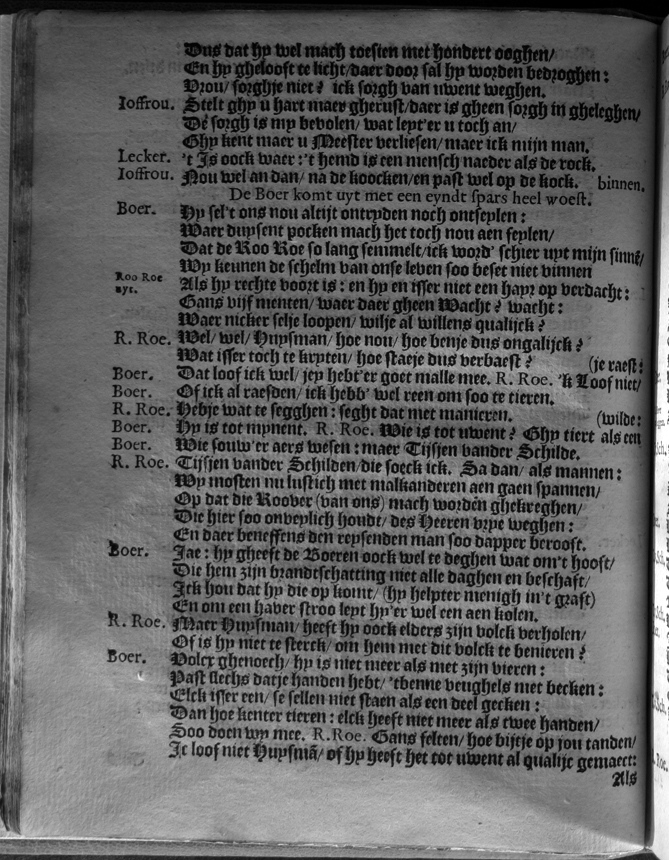 Dus dat hy wel mach toesien met hondert ooghen/
En hy ghelooft te licht/daer door sal hy worden bedroghen:
Vrou/ sorghje niet? ick sorgh van uwent weghen.
Ioffrou. Stelt ghy u hart maer gherust/daer is gheen sorgh in gheleghen/
De sorgh is my bevolen/ wat leyt'er u toch an/
Ghy kent maer u Meester verliesen/ maer ick mijn man.
Lecker. 't Is oock waer: 't hemd is een mensch naeder als de rock.
Ioffrou. Nou wel an dan/ na de koocken/en past wel op de kock. binnen.
De Boer komt uyt met een eyndt spars heel woest.
Boer. Hy sel't ons nou altijt ontryden noch ontseylen:
Waer duysent pocken mach het toch nou aen feylen/
Dat de Roo Roe so lang semmelt/ick word' schier uyt mijn sinnē/
Wy keunen de schelm van onse leven soo beset niet vinnen
Roo Roe uyt. Als hy rechte voort is: en hy en isser niet een hayr op verdacht:
Gans vijf menten/ waer daer gheen Wacht? wacht:
Waer nicker selje loopen/ wilje al willens qualijck?
R. Roe. Wel/ wel/ Huysman/ hoe nou/ hoe benje dus ongalijck?
Wat isser toch te kryten/ hoe staeje dus verbaest? (je raest:
Boer. Dat loof ick wel/ jey hebt'er goet malle mee. R. Roe. 'k Loof niet/
Boer. Of ick al raesden/ ick hebb' wel reen om soo te tieren.
R. Roe. Hebje wat te segghen: seght dat met manieren. (wilde:
Boer. Hy is tot mynent. R. Roe. Wie is tot uwent? Ghy tiert als een
Boer. Wie souw'er aers wesen: maer Tijsjen vander Schilde.
R. Roe. Tijsjen vander Schilden/die soeck ick. Sa dan/ als mannen:
Wy mosten nu lustich met malkanderen aen gaen spannen/
Op dat die Roover (van ons) mach wordēn ghekreghen/
Die hier soo onveylich houdt/ des Heeren vrye weghen:
En daer beneffens den reysenden man soo dapper beroost.
Boer. Jae: hy gheeft de Boeren oock wel te deghen wat om't hoost/
Die hem zijn brandtschatting niet alle daghen en beschaft/
Ick hou dat hy die op komt/ (hy helpter menigh in't graft)
En om een haver stroo leyt hy'er wel een aen kolen.
R. Roe. Maer Huysman/ heeft hy oock elders zijn volck verholen/
Of is hy niet te sterck/ om hem met dit volck te benieren?
Boer. Volcx ghenoech/ hy is niet meer als met zijn vieren:
Past slechs datje handen hebt/ 'tbenne veughels met becken:
Elck isser een/ se sellen niet staen als een deel gecken:
Dan hoe kenter tieren: elck heeft niet meer als twee handen/
Soo doen wy mee. R. Roe. Gans felten/ hoe bijtje op jou tanden/
Ic loof niet Huysmā/ of hy heeft het tot uwent al qualijc gemaect:
Als